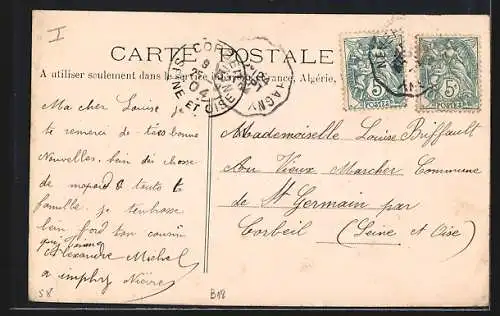 I
CARTE POSTALE
A utiliser seulement dans le service France, Algérie,
CORBEIL
SEINE ET OISE
5 POSTES
5 POSTES
Ma cher Louise je
te remerci de tes bonne
Nouvelles. bien du chosse
de ma part a toute ta
famille. je tenbrasse
bien ford ton cousin
qui t'aime
Alexandre Michel
a imphy Nièvre
Mademoiselle Louise Briffault
Au Vieux Marcher Commune
de St Germain par
Corbeil (Seine et Oise)
58
B18